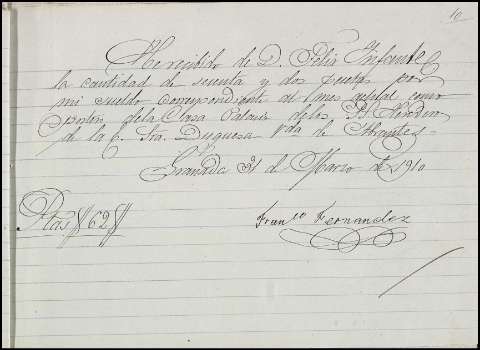 10
He recibido de D. Felix Infante
la cantidad de sesenta y dos pesetas por
mi sueldo correspondiente al mes actual como
porton de la Casa Palacio de los
de la E. Sra. Duquesa Vda. de Abrantes.
Granada 31 de Marzo de 1910
Ptas 62
Franco Fernandez